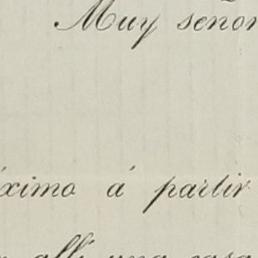 Muy señor
áximo á partir
allí una casa